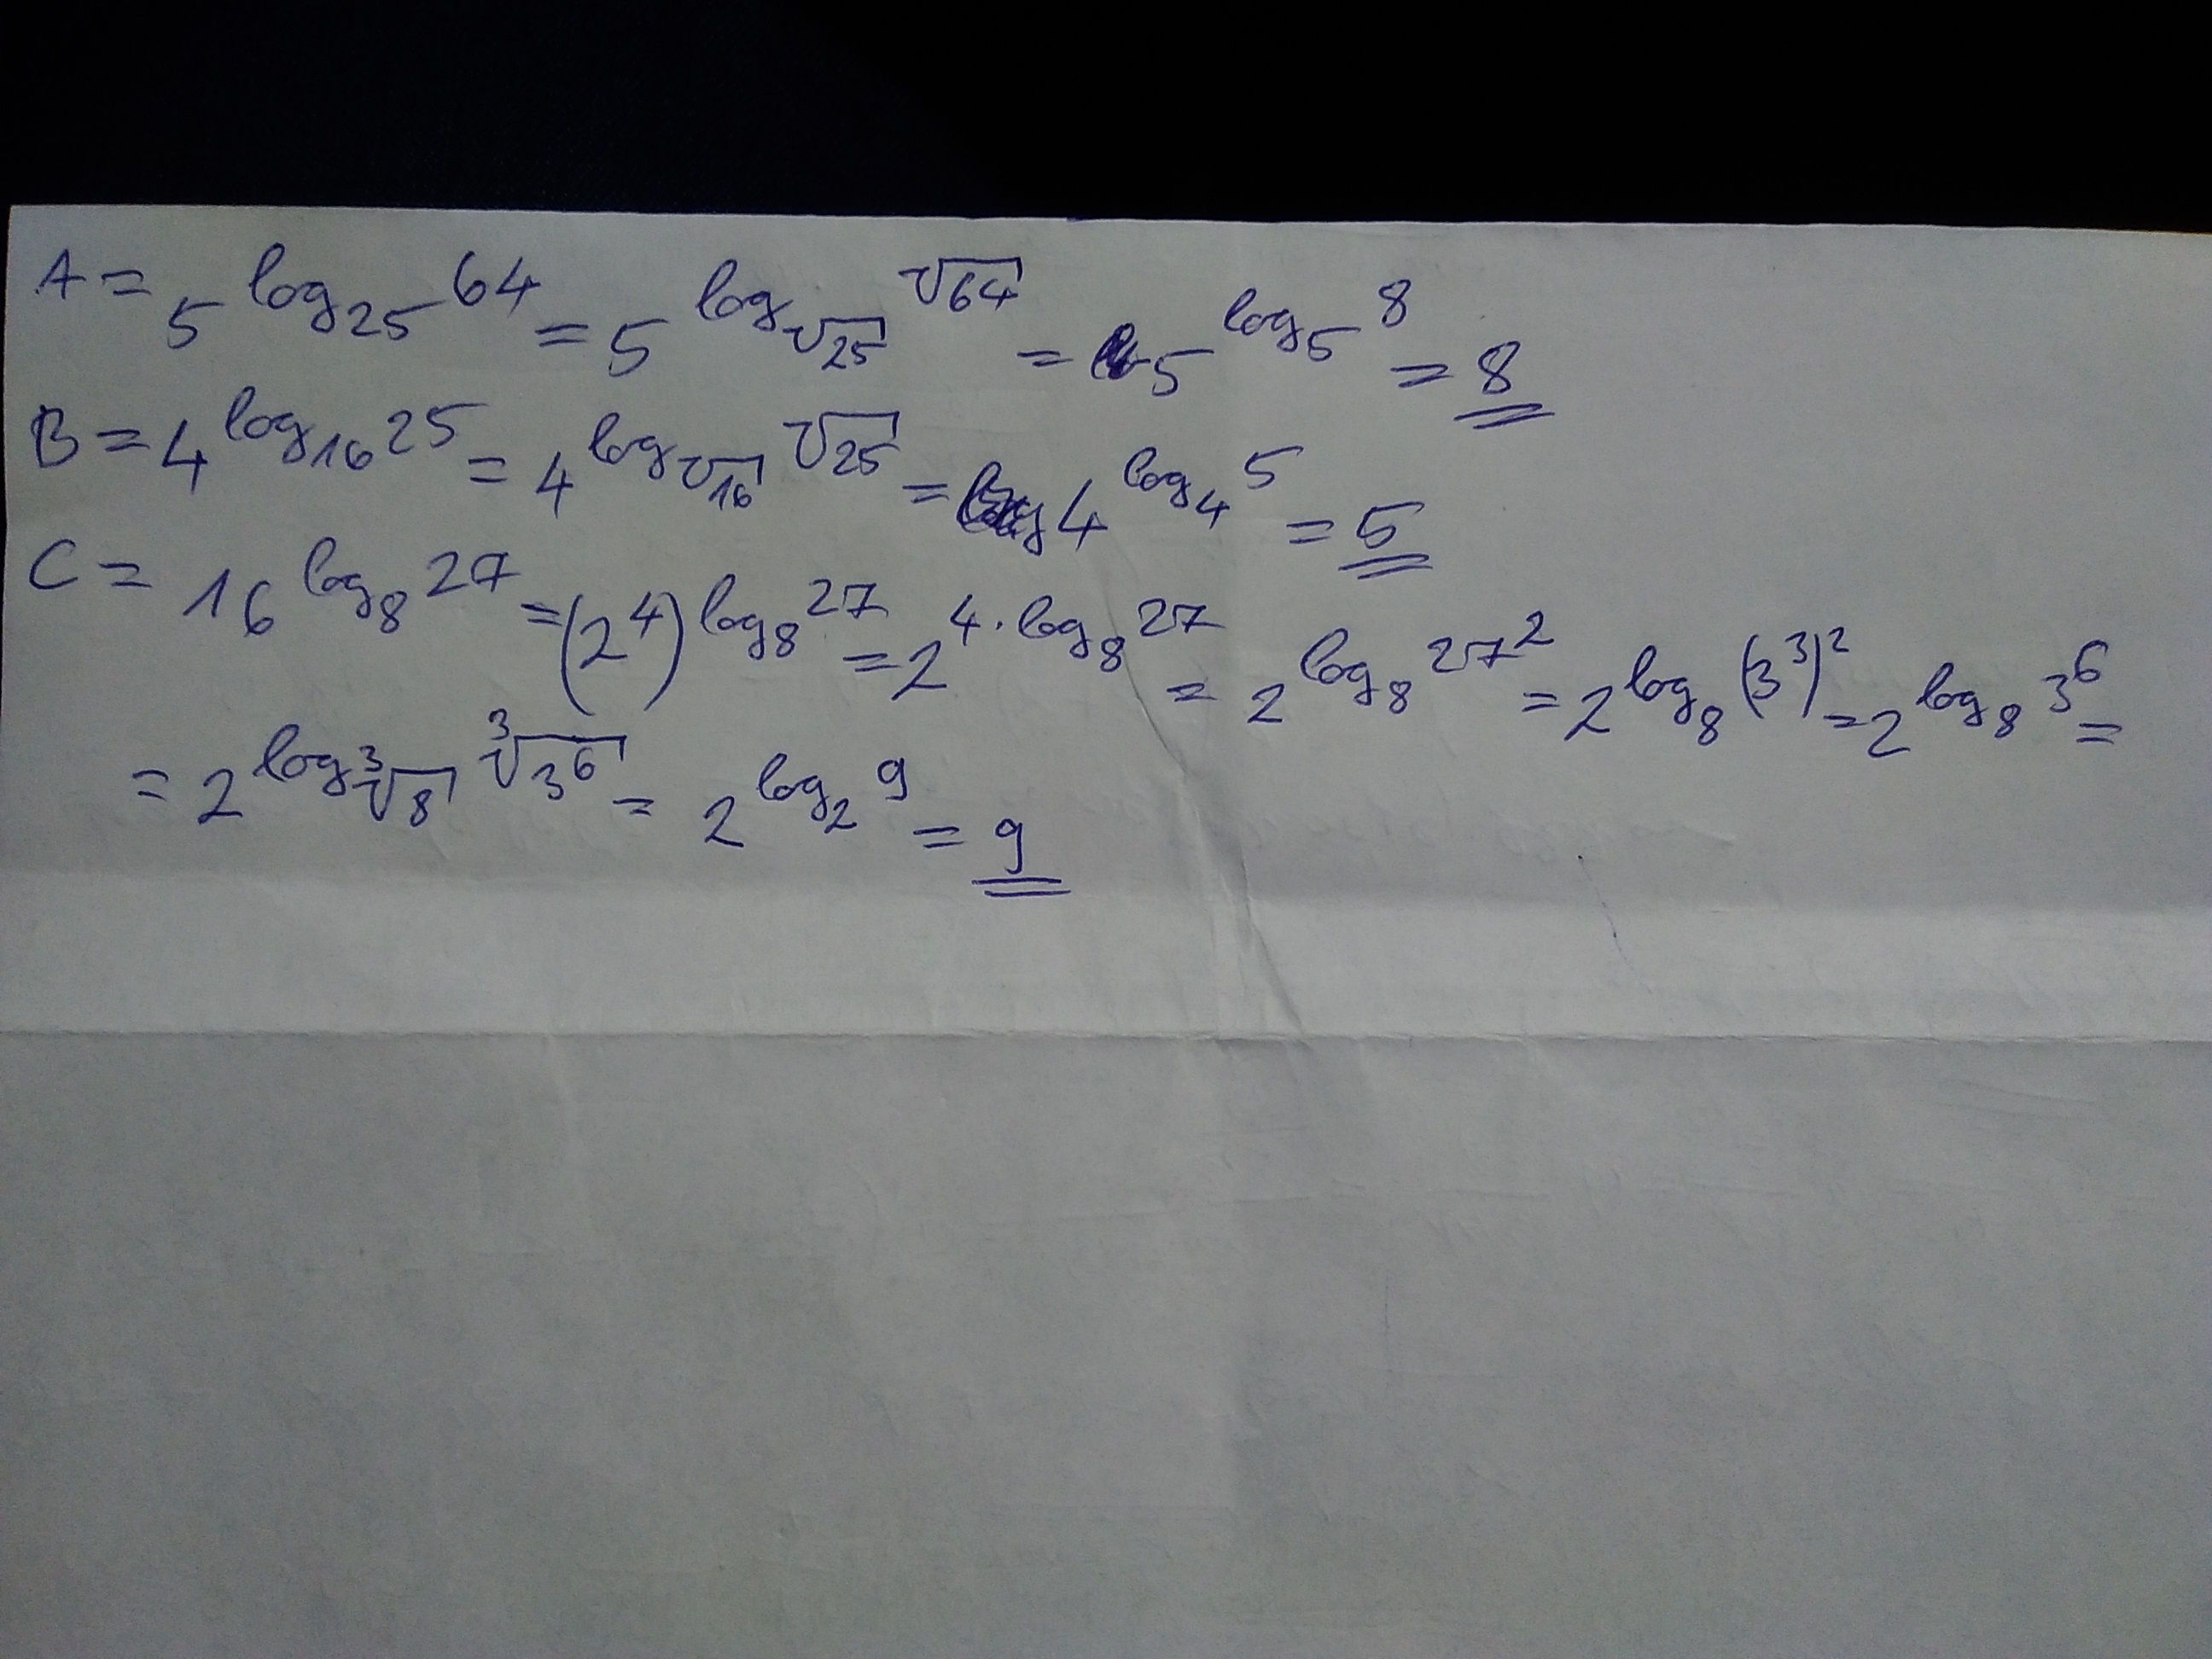 A = 5^log₂₅ 64 = 5^log_√25 √64 = 5^log₅ 8 = 8
B = 4^log₁₆ 25 = 4^log_√16 √25 = 4^log₄ 5 = 5
C = 16^log₈ 27 = (2⁴)^log₈ 27 = 2^4·log₈ 27 = 2^log₈ 27² = 2^log₈ (3³)² = 2^log₈ 3⁶ =
= 2^log_∛8 ∛3⁶ = 2^log₂ 9 = 9